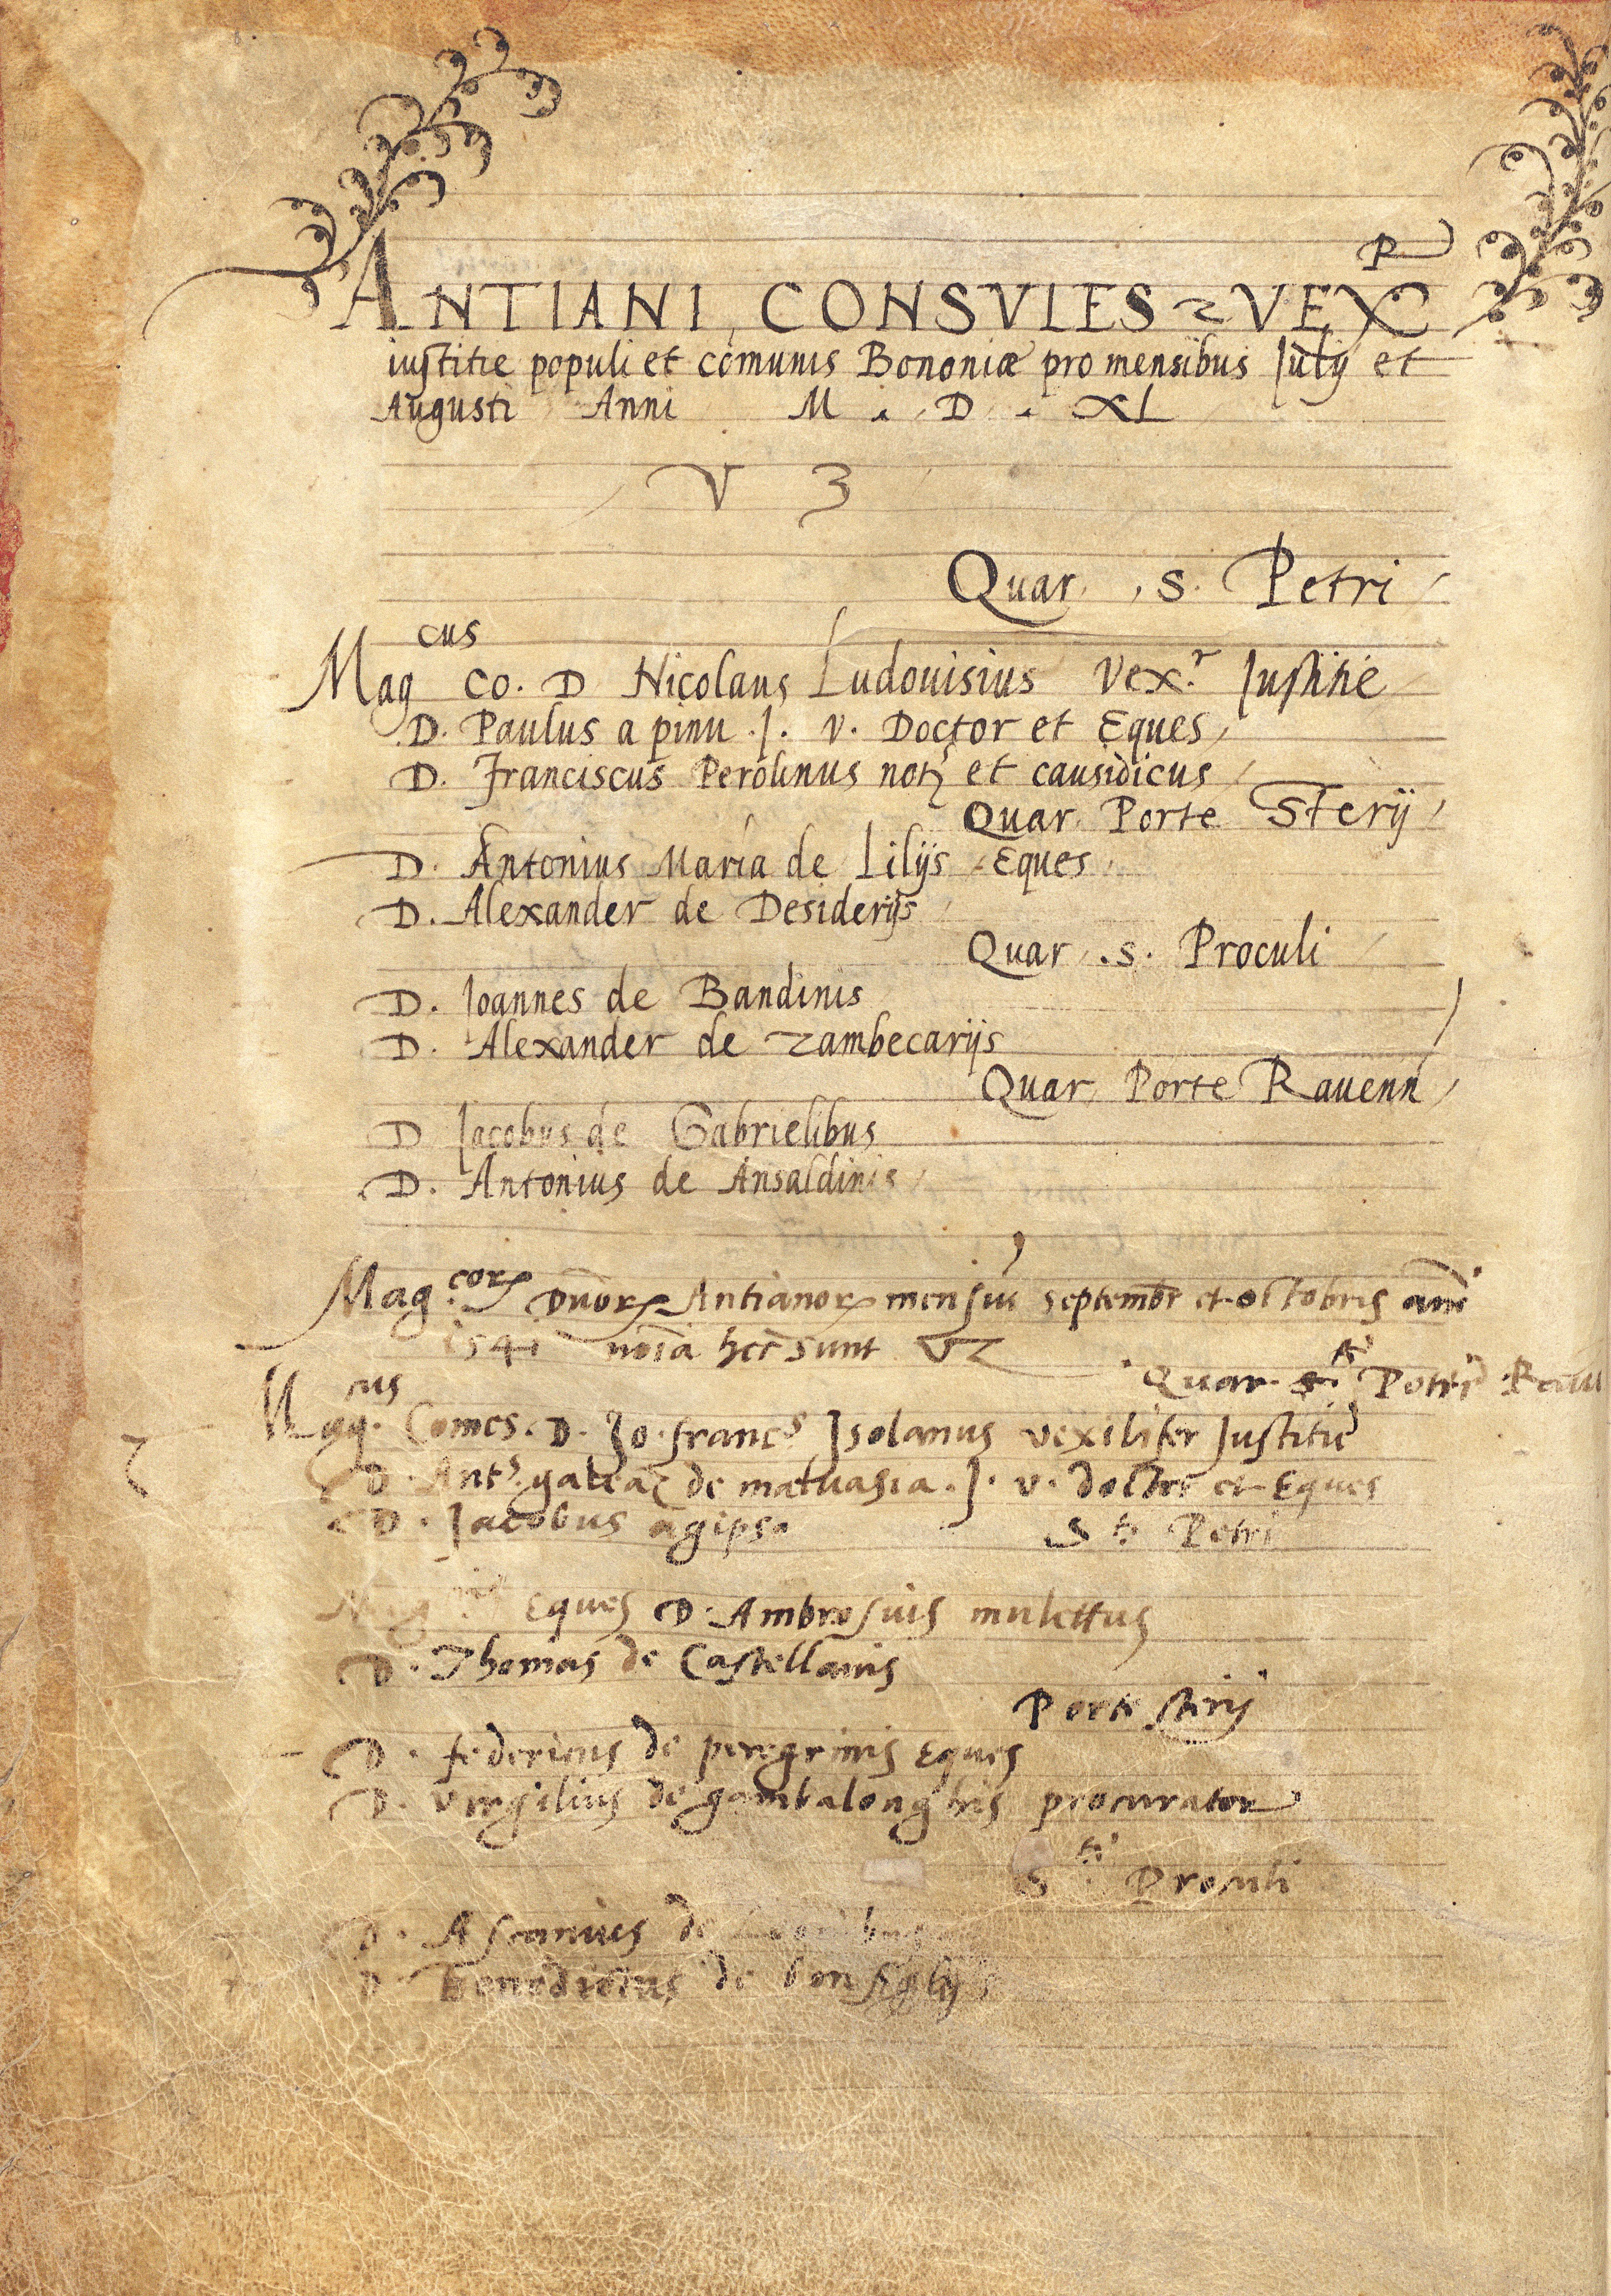 ANTIANI, CONSVLES & VEXR
iustitie populi et comunis Bononiæ pro mensibus Iulij et
Augusti Anni M . D . XL
V 3
Quar. S. Petri
Magcus Co. D Nicolaus Ludouisius Vex.r Iustitie
D. Paulus a pinu .I. V. Doctor et Eques
D. Franciscus Perolinus notʒ et causidicus
Quar. Porte Sterij
D. Antonius Maria de Lilijs Eques
D. Alexander de Desiderijs
Quar. S. Proculi
D. Ioannes de Bandinis
D. Alexander de Zambecarijs
Quar. Porte Rauenn
D Iacobus de Gabrielibus
D. Antonius de Ansaldinis
Mag.corꝝ Dnorꝝ Antianorꝝ mensiu Septembr et octobris anni
1541 noia hec sunt VZ
Quar. Petri Rauu
Mag.cus Comes. D. Jo. francs Isolanus vexilifer Iustitie
D. Ants. galeaz de maluasia .I. v. doctor et Eques
D. Iacobus agipso Sti Petri
Mag Eques D. Ambrosius
D. Thomas de Castellanis
Porte sterij
D. federicus de peregrinis Eques
D. virgilius de gambalonghis procurator
Sti Proculi
D. Ascanius de
D. Benedictus de bonfiglijs